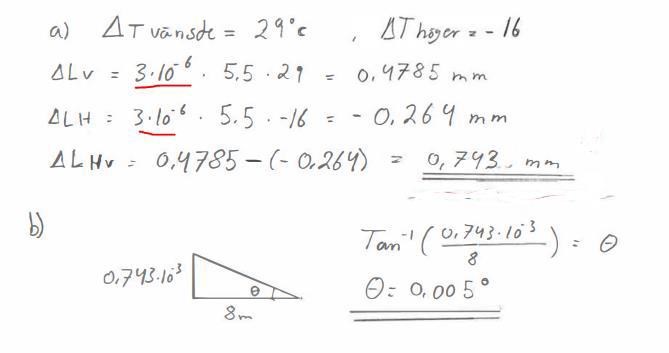 a) ΔT vänsde = 29°c , ΔT höger = - 16
ΔLv = 3·10⁻⁶ · 5,5 · 29 = 0,4785 mm
ΔLH = 3·10⁻⁶ · 5.5 · -16 = - 0,264 mm
ΔLHv = 0,4785 - (- 0,264) = 0,743 mm
b)
Tan⁻¹ (0,743·10⁻³/8) = θ
0,743·10⁻³
θ
θ = 0,005°
8m